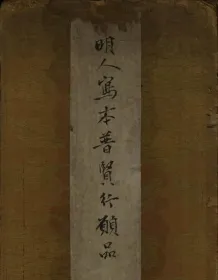 明人寫本普賢行願品